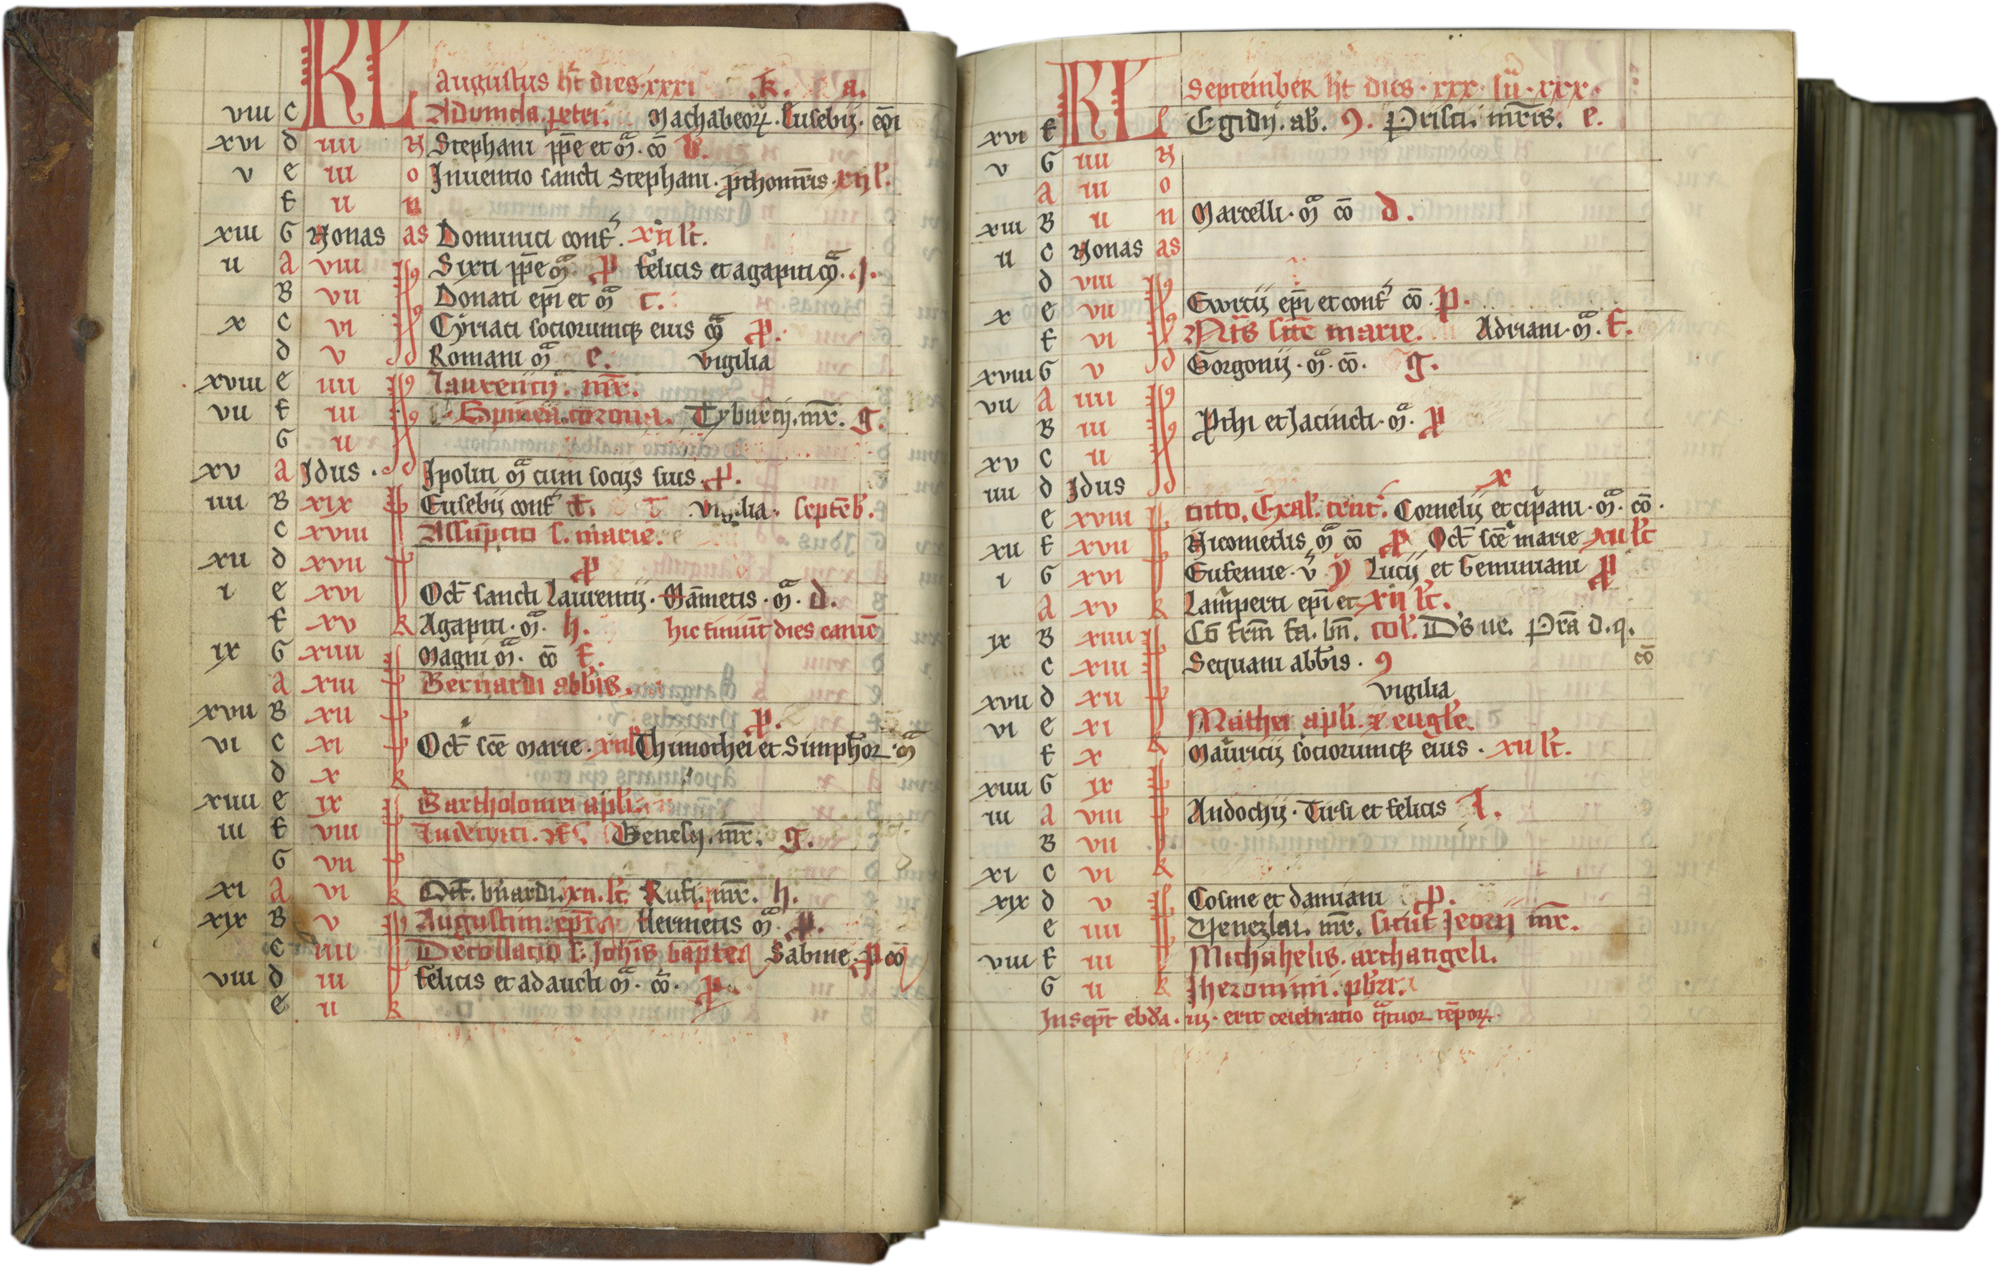 KL Augustus ht dies xxxi k. a.
viii c Ad uincla petri. Machabeorz. Eusebij. epi
xvi d iiii N Stephani ppe et m. co
v e iii o Inuentio sancti Stephani. pthomris xii l'c.
f ii n
xiii G Nonas as Dominici conf. xii lc.
ii a viii Id9 Sixti ppe m p felicis et agapiti m.
B vii Donati epi et m
x c vi Cyriaci sociorumq eius m p.
d v Romani m e. vigilia
xviii e iiii Laurencij. mr.
vii f iii Spinea corona. Tyburcij. mr. g.
G ii
xv a Idus Ipoliti m cum socijs suis. p.
iiii B xix Eusebij conf vigilia. septeb.
c xviii Assupcio s. marie.
xii d xvii p
i e xvi Oct sancti Laurentij. Mametis. m. d.
f xv k Agapiti. m. h. hic finiut dies canic
ix G xiiii Magni m. co f.
a xiii Bernardi abbis.
xvii B xii p.
vi c xi Oct sce Marie. xii l Thimothei et Simphor. m
d x k
xiiii e ix Bartholomei apli.
iii f viii Ludewici. Genesij. mr. g.
G vii
xi a vi k Oct. bnardi. xii. lc Rufi. mr. h.
xix B v Augustini. epi Hermetis m. p.
c iiii Decollacio s. Johis bapte Sabine. p co
viii d iii felicis et adaucti m. co. p.
e ii k
KL September ht dies. xxx. lu. xxx.
xvi f Egidij. ab. 9. Prisci. mris. e.
v G iiii N
a iii o
xiii B ii n Marcelli. m co d.
ii c Nonas as
d viii
x e vii Euurcij epi et conf co. p.
f vi Nts sce marie. Adriani. m. f.
xviii G v Gorgonij. m. co. g.
vii a iiii
B iii Pthi et Jacincti. m. p
xv c ii
iiii d Idus x
e xviii Exal. cruc. Cornelij et cipani. m. co.
xii f xvii Nicomedis m co p Oct sce marie xii lc
i G xvi Eufemie. v Lucij et Geminiani p
a xv k Lamperti epi et xii lc.
ix B xiiii
c xiii Sequani abbis. 9 co
xvii d xii vigilia
vi e xi Mathei apli. z eugle.
f x k Mauricij sociorumq eius. xii lc.
xiiii G ix
iii a viii Andochij. Tirsi et felicis
B vii
xi c vi k
xix d v Cosme et damiani p.
e iiii Venezlai. mr. sicut Jeorij mr.
viii f iii Michahelis. archangeli.
G ii k Jheronimi. pbri.
In sept ebda. iii. erit celebratio qtuor tepor.